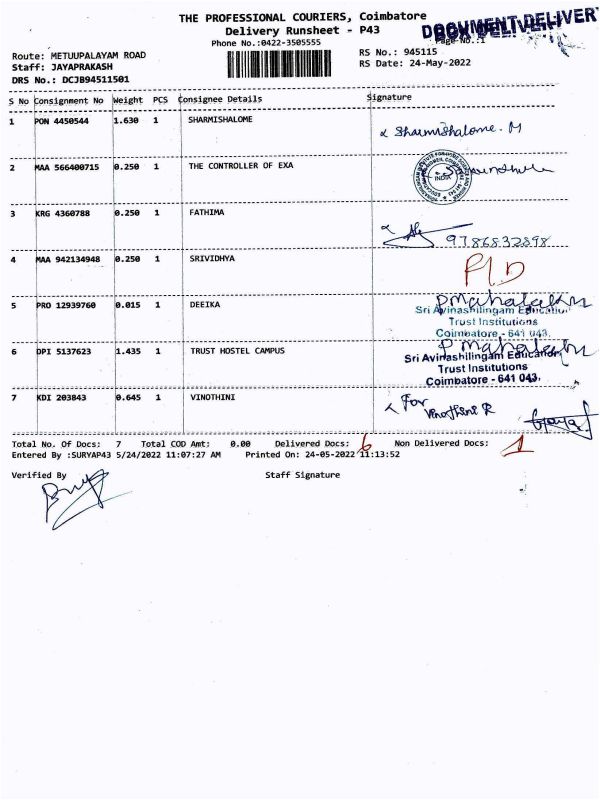 THE PROFESSIONAL COURIERS, Coimbatore
Delivery Runsheet - P43
DOCUMENT DELIVERY
Phone No.:0422-3505555
Page No.:1
Route: METUUPALAYAM ROAD
RS No.: 945115
Staff: JAYAPRAKASH
RS Date: 24-May-2022
DRS No.: DCJB94511501
S No Consignment No Weight PCS Consignee Details Signature
1 PON 4450544 1.630 1 SHARMISHALOME
Sharmishalome. M
2 MAA 566400715 0.250 1 THE CONTROLLER OF EXA
INDIA
3 KRG 4360788 0.250 1 FATHIMA
9786832898
4 MAA 942134948 0.250 1 SRIVIDHYA
5 PRO 12939760 0.015 1 DEEIKA
P Mahalakshmi
Sri Avinashilingam Education
Trust Institutions
Coimbatore - 641 043.
6 DPI 5137623 1.435 1 TRUST HOSTEL CAMPUS
P Mahalakshmi
Sri Avinashilingam Education
Trust Institutions
Coimbatore - 641 043.
7 KDI 203843 0.645 1 VINOTHINI
For
Vinothine R
Total No. Of Docs: 7 Total COD Amt: 0.00 Delivered Docs: 6 Non Delivered Docs: 1
Entered By :SURYAP43 5/24/2022 11:07:27 AM Printed On: 24-05-2022 11:13:52
Verified By Staff Signature